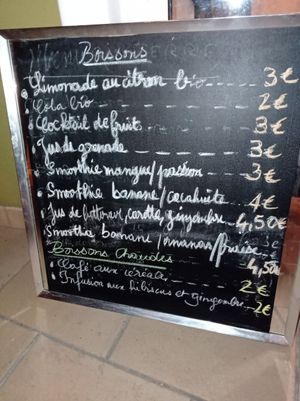 Boissons
Limonade au citron bio 3€
Cola bio 2€
Cocktail de fruit 3€
Jus de grenade 3€
Smoothie mangue/passion 3€
Smoothie banane/cacahuète 4€
Jus de betterave, carotte, gingembre 4,50€
Smoothie banane/ananas/fraise 4,50€
Boissons Chaudes
Café aux céréales 2€
Infusion aux hibiscus et gingembre 2€